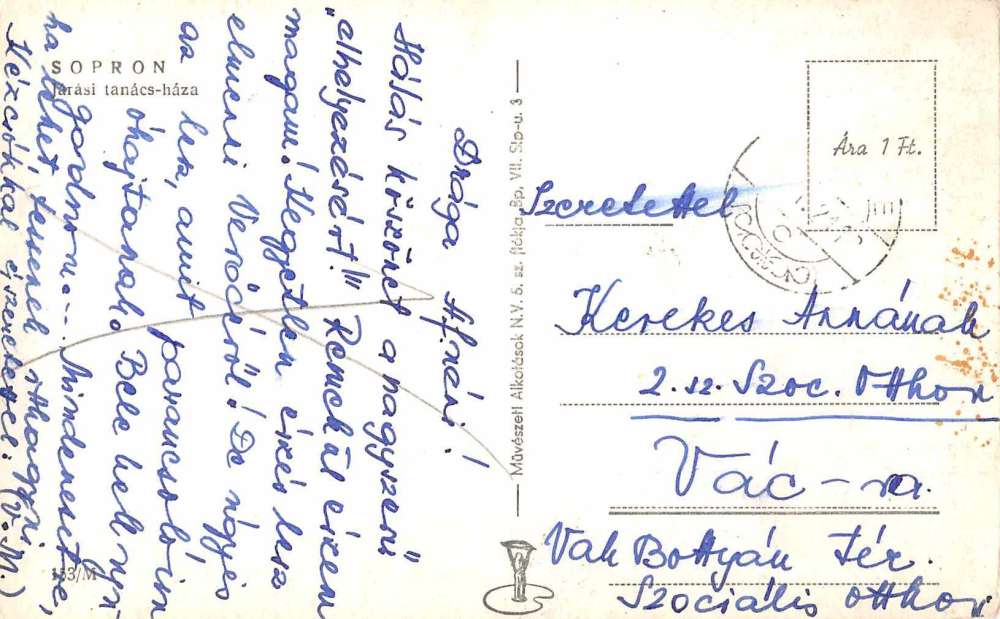 SOPRON
Járási tanács-háza
Drága
Hálás köszönet a nagyszerű
"elhelyezésért"!!! Remekül érzem
magam! Hegyetlen érzés lesz
elmenni Verőcéről! De úgyis
az lesz, amit parancsolóim
óhajtanak. Bele kell nyu-
godnom... Mindenesetre,
ha lehet, tessenek itthagyni
Kézcsókkal és szeretettel: (V.M.)
153/M
Művészeti Alkotások N.V. 5. sz. fiókja, Bp. VII. Síp-u. 3
Ára 1 Ft.
Szeretettel
Kerekes Annának
2. sz. Szoc. Otthon
Vác-ra.
Vak Bottyán tér.
Szociális otthon